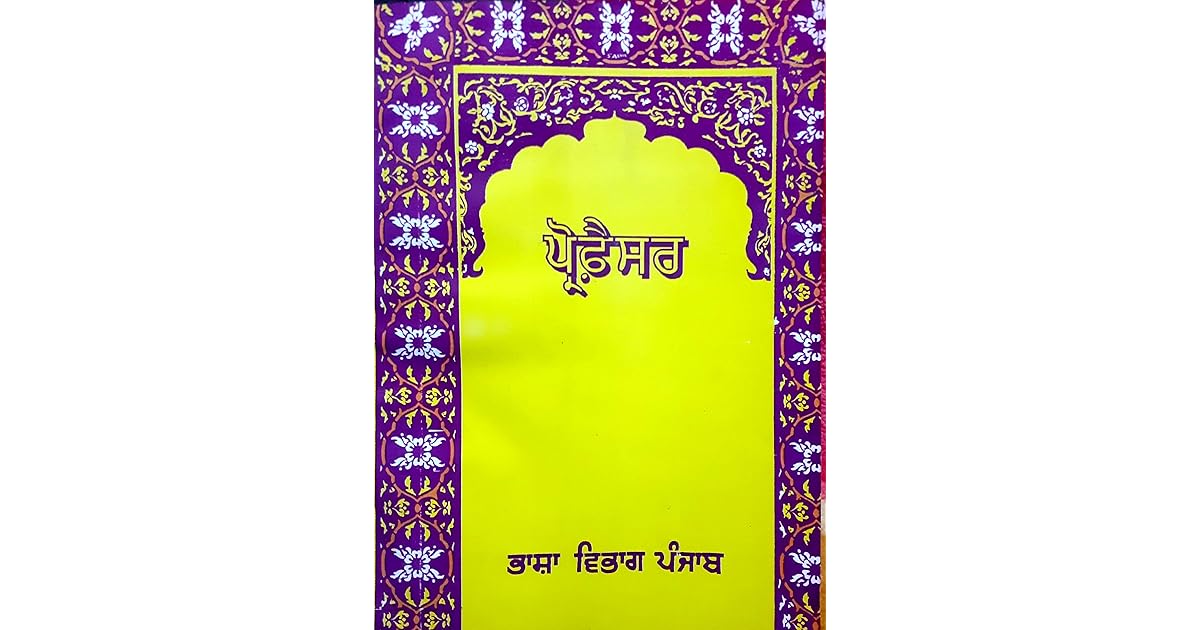 ਪ੍ਰੋਫ਼ੈਸਰ
ਭਾਸ਼ਾ ਵਿਭਾਗ ਪੰਜਾਬ